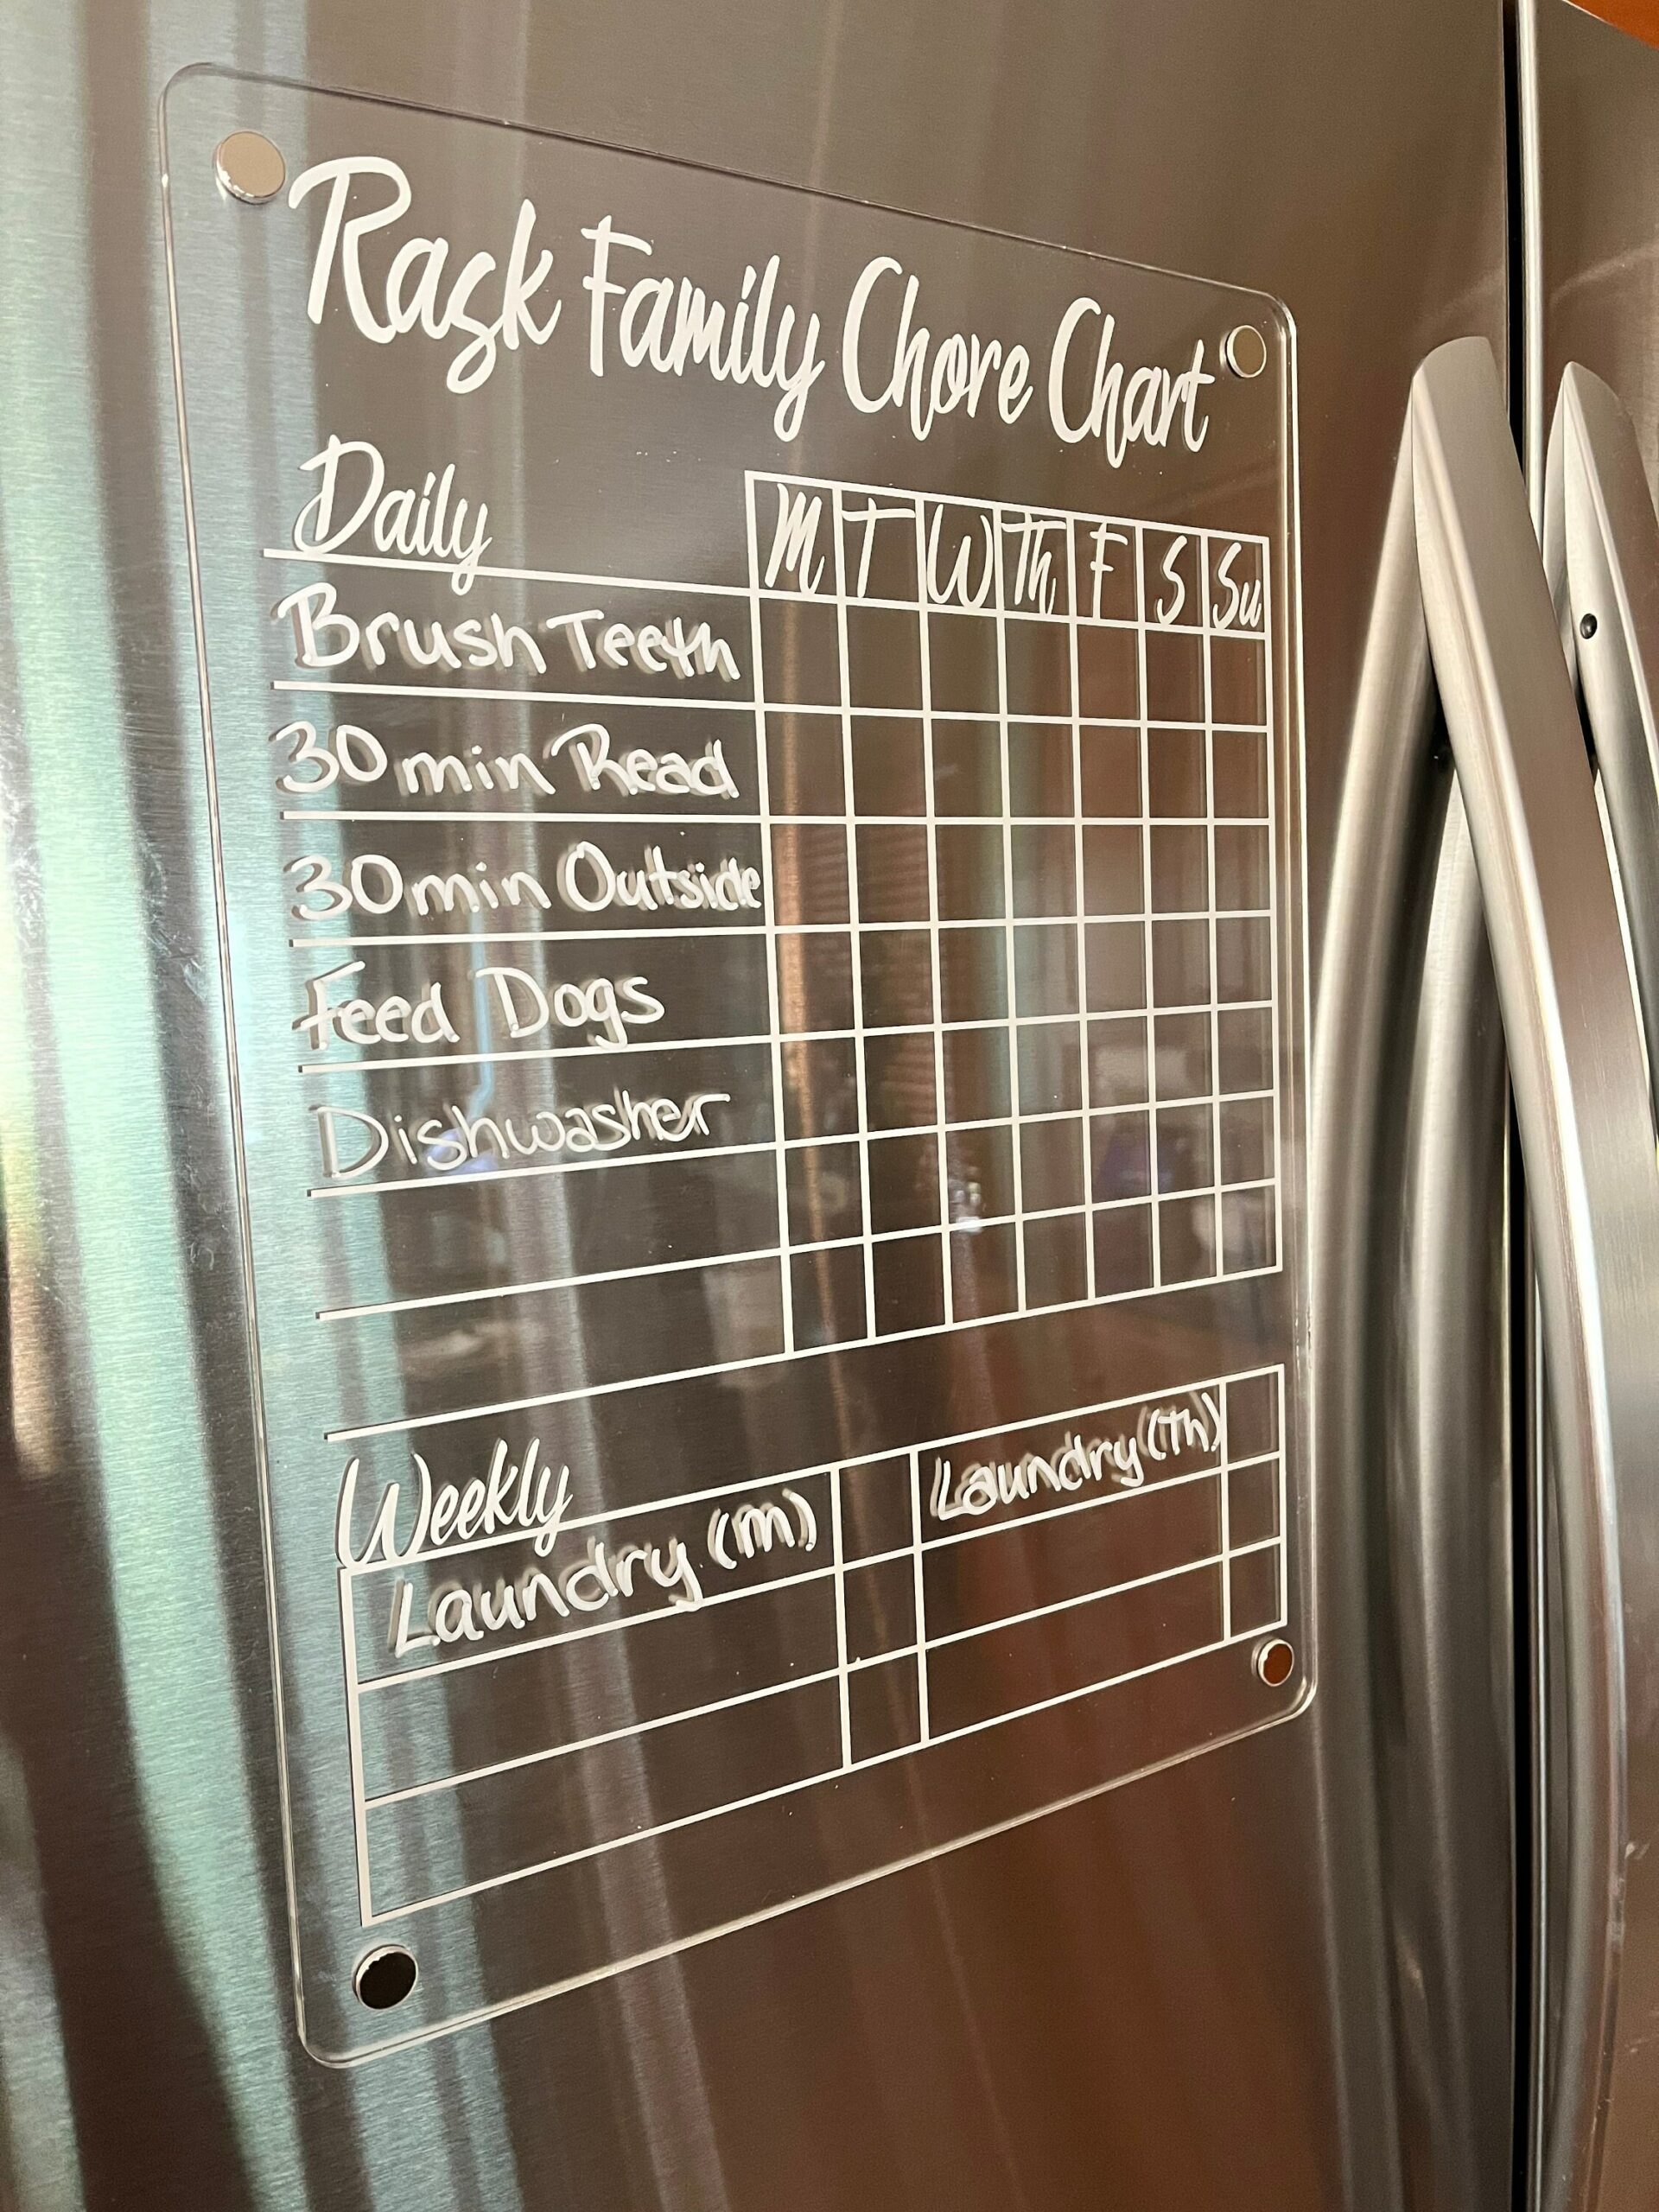 Rask Family Chore Chart
Daily M T W Th F S Su
Brush Teeth
30 min Read
30 min Outside
Feed Dogs
Dishwasher
Weekly
Laundry (m) Laundry (Th)